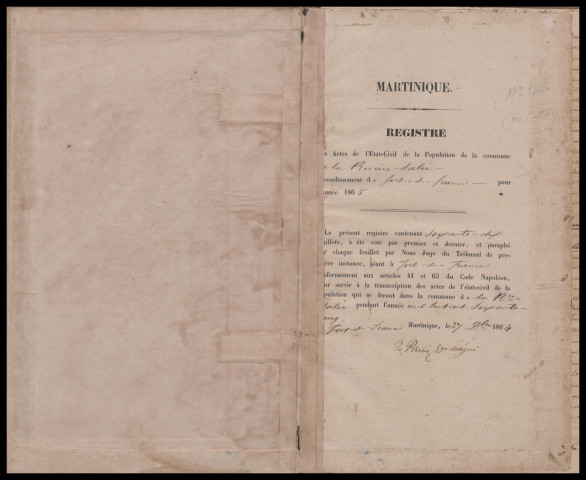 MARTINIQUE.
REGISTRE
s Actes de l'Etat-Civil de la Population de la commune
e la Rivière-Salée
ondissement de fort-de-france pour
nnée 1865
Le présent registre contenant Soixante-dix
uillets, a été coté par premier et dernier, et paraphé
r chaque feuillet par Nous Juge du Tribunal de pre-
ière instance, séant à Fort-de-France
nformément aux articles 41 et 63 du Code Napoléon,
ur servir à la transcription des actes de l'état-civil de la
pulation qui se feront dans la commune de la Rre
Salée pendant l'année mil huit cent soixante-
cinq
Fort-de-France Martinique, le 27 Xbre 1864